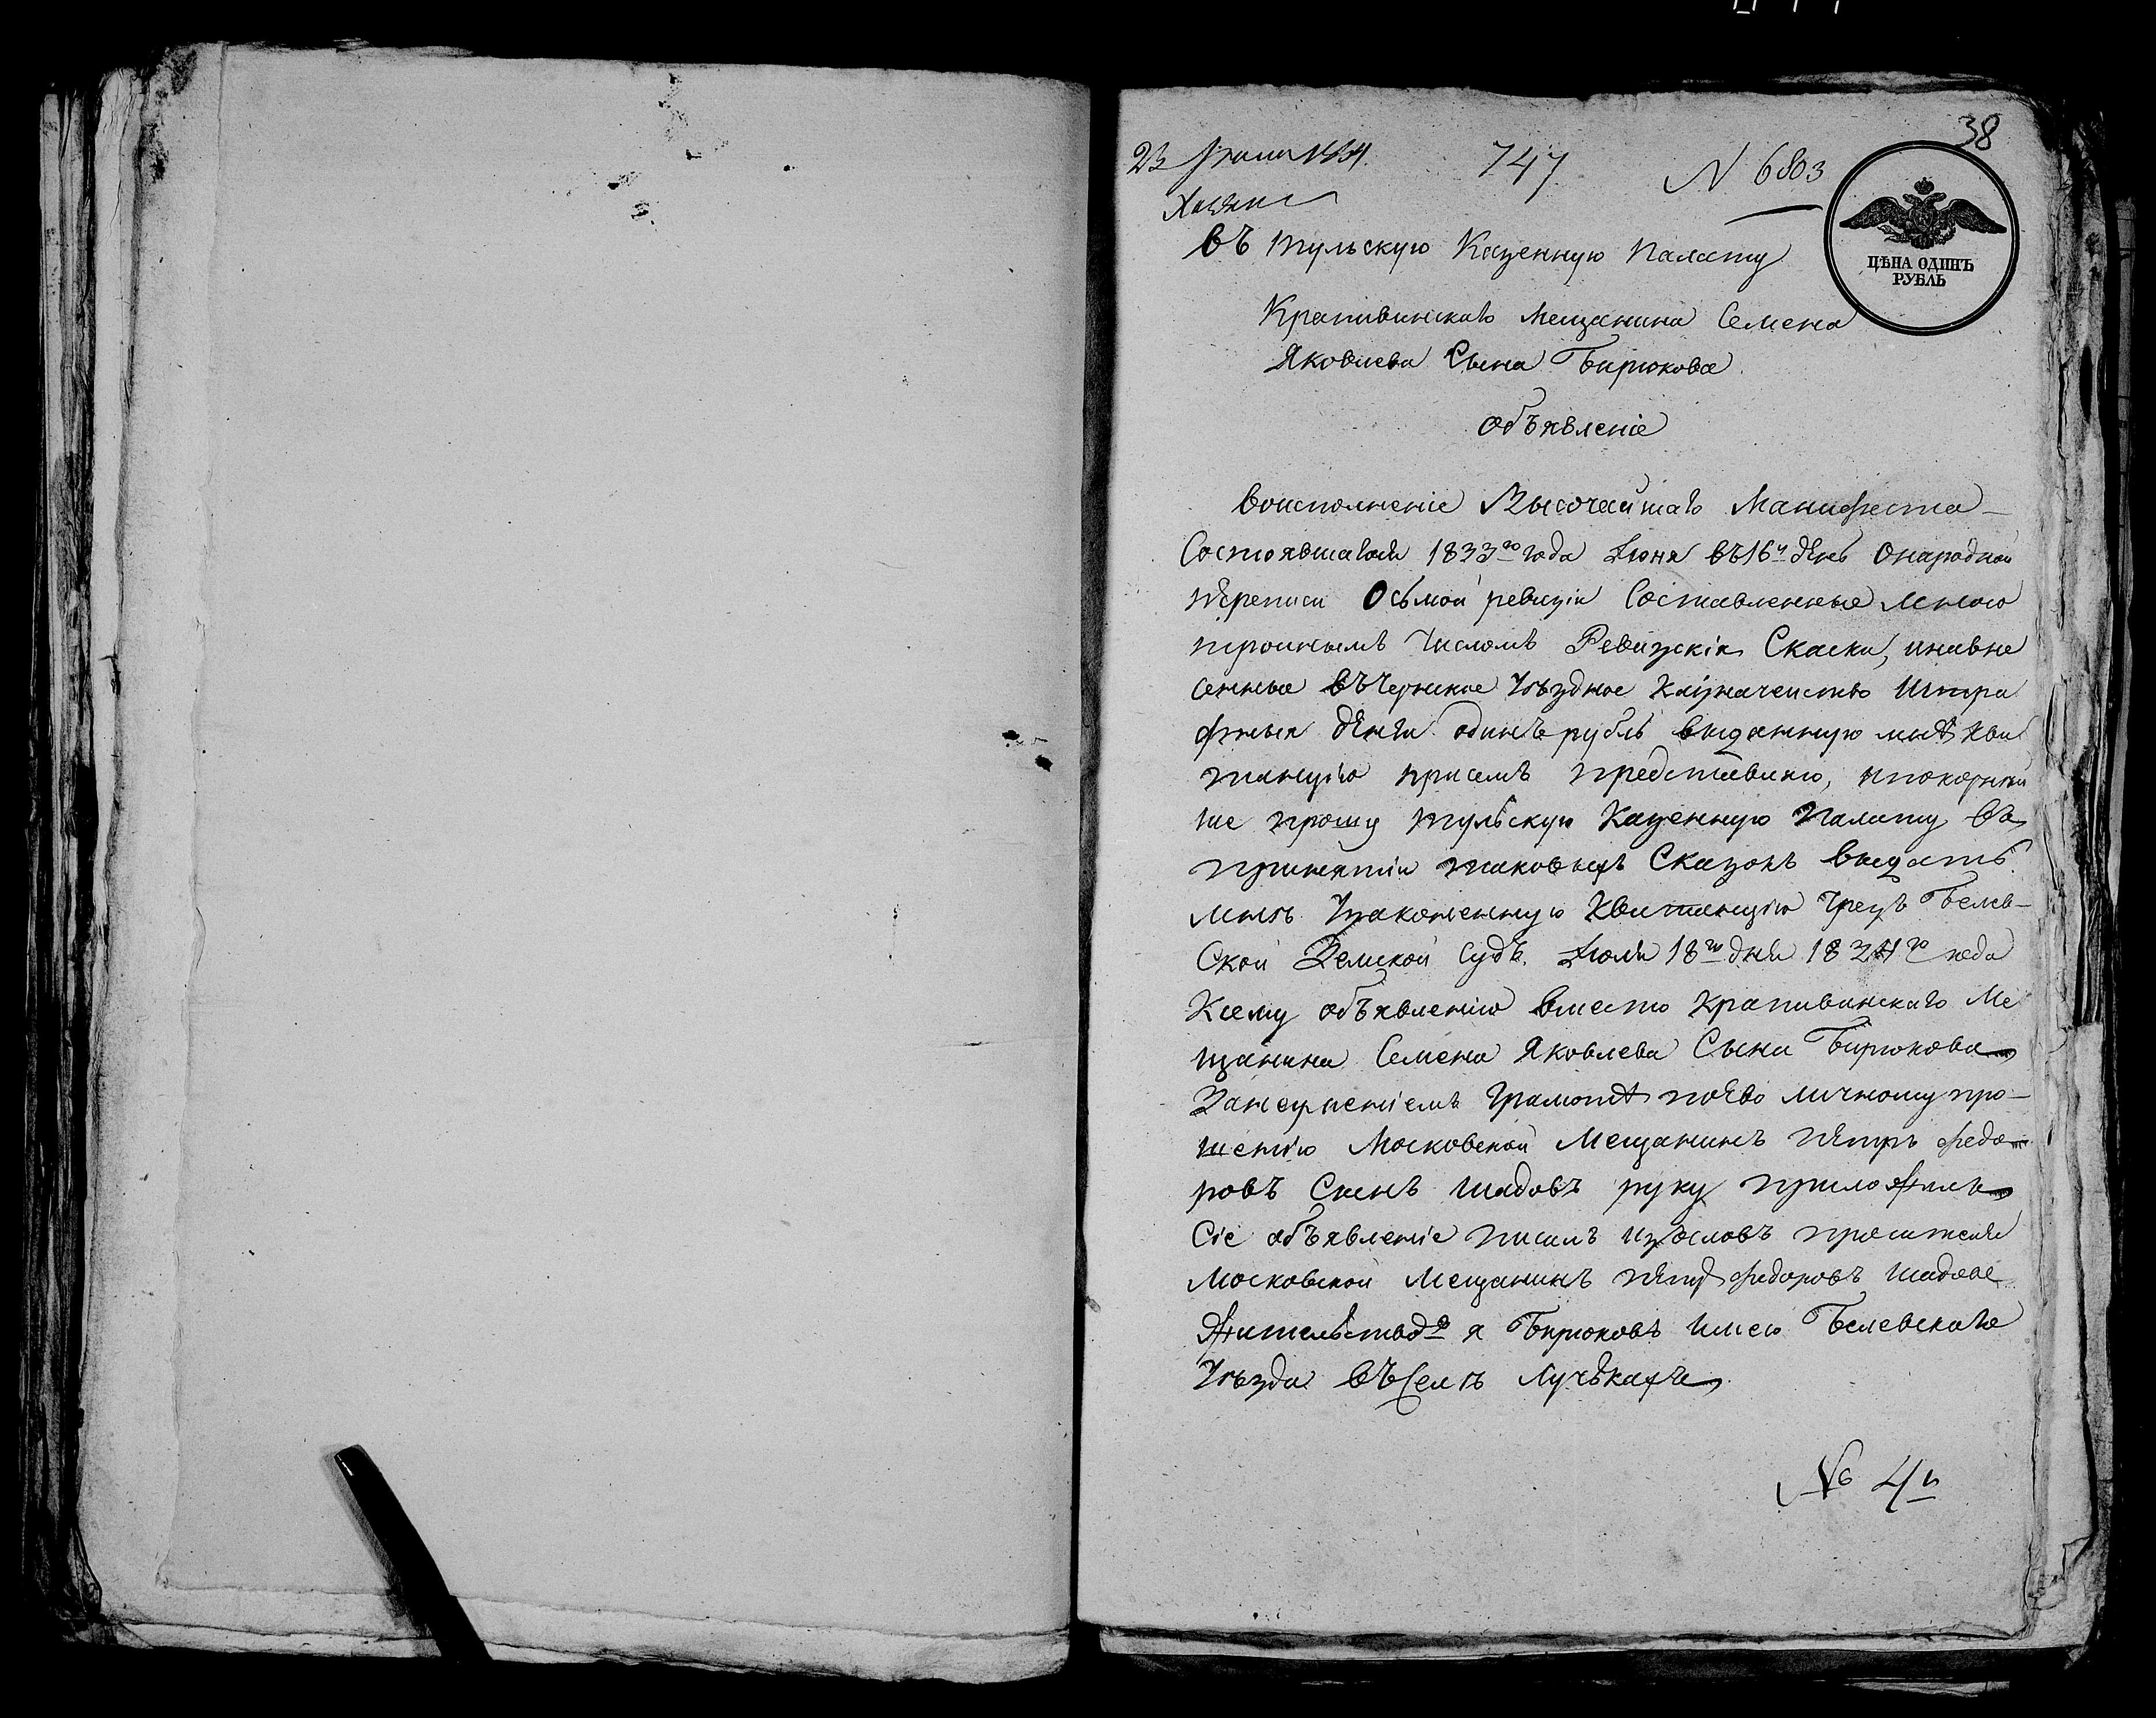 38
23 Июля 1834.
747
N 6803
въ тульскую Казенную Палату
ЦѢНА ОДИНЪ
РУБЛЬ
Крапивинскаго мещанина Семена
Яковлева Сына Бирюкова
объявленіе
Воисполненіе Высочайшаго Манифеста
Состоявшагося 1833го года Июня въ 16й день Онародной
переписи Осьмой ревизіи Составленные мною
троинымъ Числомъ Ревизскія Скаски, инавне
сенные въ Чернское Уѣздное Казначеиство Штра
фныя деньги одинъ рубль выданную мнѣ кви
танцію присемъ представляю, ипокорнѣи
ше прошу тульскую Казенную Палату въ
принятіи таковыхъ Сказокъ выдать
мнѣ Узаконенную Квитанцію Чрезъ Белев-
Ской Земской Судъ. Июля 18го дня 1834го года
Ксему объявленію вместо Крапивинскаго Ме
щанина Семена Яковлева Сына Бирюкова
Занеуменіемъ Грамотѣ поево личному про-
шенію Московской Мещанинъ петръ федо-
ровъ Сынъ Шадовъ руку приложилъ
Сіе объявленіе писалъ изсловъ просителя
Московской Мещанинъ петръ федоровъ Шадовъ
Жительство я Бирюковъ Имею Белевскаго
Уѣзда въ Селѣ Лучькахъ
№ 4й